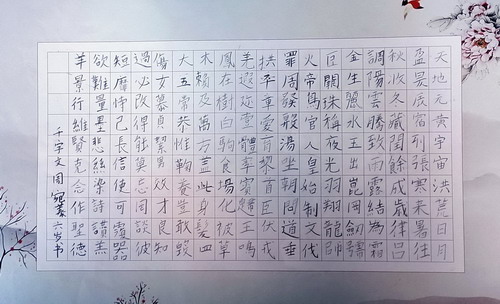 天地元黄宇宙洪荒日月
盈昃辰宿列張寒来暑往
秋收冬藏闰餘成歲律吕
調陽雲騰致雨露結為霜
金生麗水玉出崑岡劍號
巨闕珠稱夜光羽翔龍師
火帝鳥官人皇始制文伐
罪周發殷湯坐朝問道垂
拱平章愛育黎首臣伏戎
羌遐迩壹體率賓歸王鳴
鳳在樹白駒食場化被草
木賴及萬方盖此身髮四
大五常恭惟鞠養豈敢毁
傷女慕貞潔男效才良知
過必改得能莫忘罔談彼
短靡恃己長信使可覆器
欲難量墨悲絲染詩讚羔
羊景行維賢克念作聖德
千字文 周 六岁书